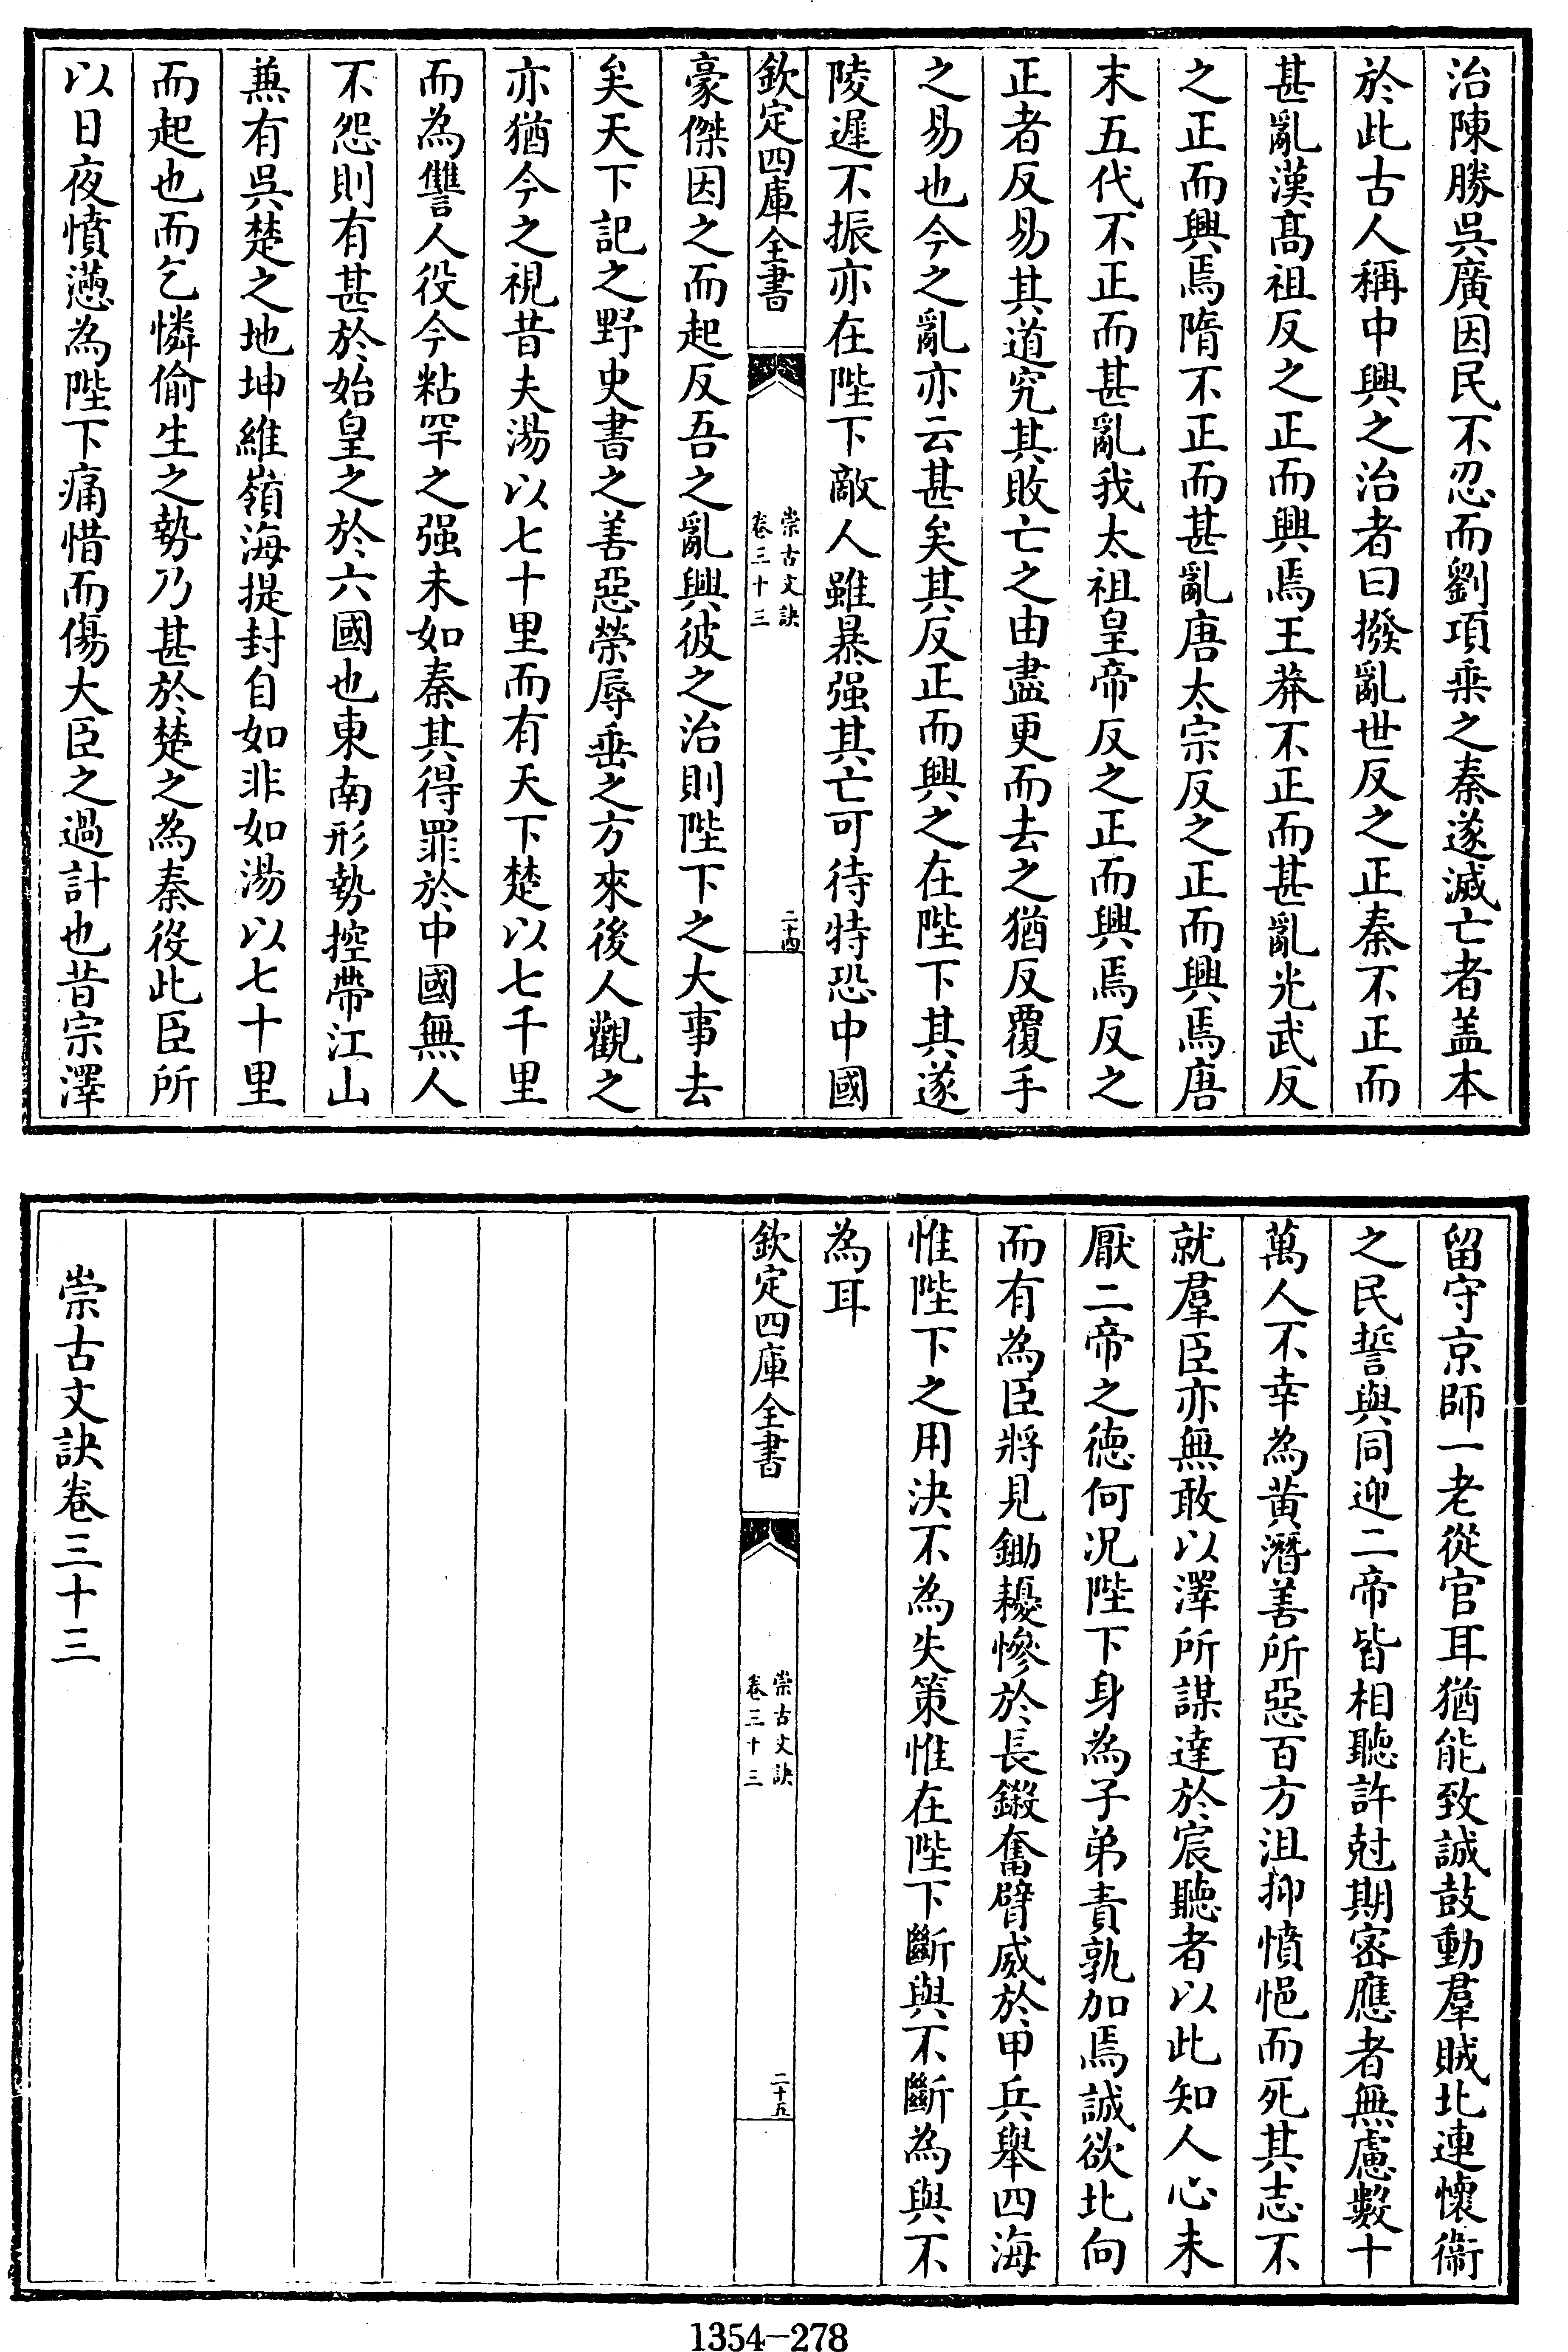 治陳勝吳廣因民不忍而劉項乗之秦遂滅亡者盖本
於此古人稱中興之治者曰撥亂世反之正秦不正而
甚亂漢髙祖反之正而興焉王莽不正而甚亂光武反
之正而興焉隋不正而甚亂唐太宗反之正而興焉唐
末五代不正而甚亂我太祖皇帝反之正而興焉反之
正者反易其道究其敗亡之由盡更而去之猶反覆手
之易也今之亂亦云甚矣其反正而興之在陛下其遂
陵遲不振亦在陛下敵人雖暴强其亡可待特恐中國
欽定四庫全書
崇古文訣
卷三十三
二十四
豪傑因之而起反吾之亂興彼之治則陛下之大事去
矣天下記之野史書之善惡榮辱垂之方來後人觀之
亦猶今之視昔夫湯以七十里而有天下楚以七千里
而為讐人役今粘罕之强未如秦其得罪於中國無人
不怨則有甚於始皇之於六國也東南形勢控帶江山
蕪有吳楚之地坤維嶺海提封自如非如湯以七十里
而起也而乞憐偷生之勢乃甚於楚之為秦役此臣所
以日夜憤懣為陛下痛惜而傷大臣之過計也昔宗澤
留守京師一老從官耳猶能致誠鼓動羣賊北連懷衛
之民誓與同迎二帝皆相聽許尅期密應者無慮數十
萬人不幸為黄潛善所惡百方沮抑憤悒而死其志不
就羣臣亦無敢以澤所謀達於宸聽者以此知人心未
厭二帝之德何况陛下身為子弟責孰加焉誠欲北向
而有為臣將見鋤耰慘於長鎩奮臂威於甲兵舉四海
惟陛下之用決不為失策惟在陛下斷與不斷為與不
為耳
欽定四庫全書
崇古文訣
卷三十三
二十五
崇古文訣卷三十三
1354-278